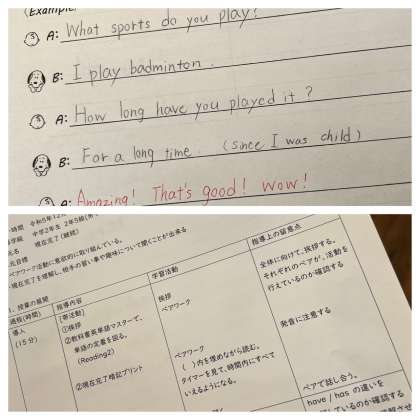 (Example.
A: What sports do you play?
B: I play badminton.
A: How long have you played it?
B: For a long time. (since I was child)
A: Amazing! That's good! Wow!
時間 令和5年12
中学2年生 2年5組(男
現在完了(継続)
ペアワーク活動に意欲的に取り組んでいる。
現在完了を理解し、相手の習い事や趣味について聞くことが出来る
授業の展開
過程(時間) 指導内容 学習活動 指導上の留意点
導入
(15分)
[帯活動]
①挨拶
②教科書英単語マスターで、
単語の定着を図る。
(Reading2)
②現在完了暗記プリント
挨拶
ペアワーク
ペアワーク
( )内を埋めながら読む。
タイマーを見て、時間内にすべて
いえるようになる。
全体に向けて、挨拶する。
それぞれのペアが、活動を
行えているのか確認する
発音に注意する
ペアで話し合う。
have / has の違いを
しているのか確認する